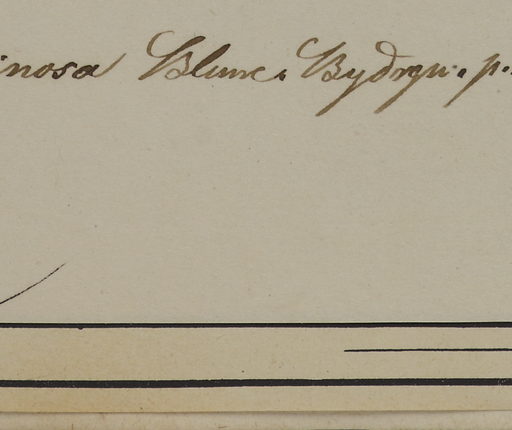 inosa Blume. Bydrgn. p.